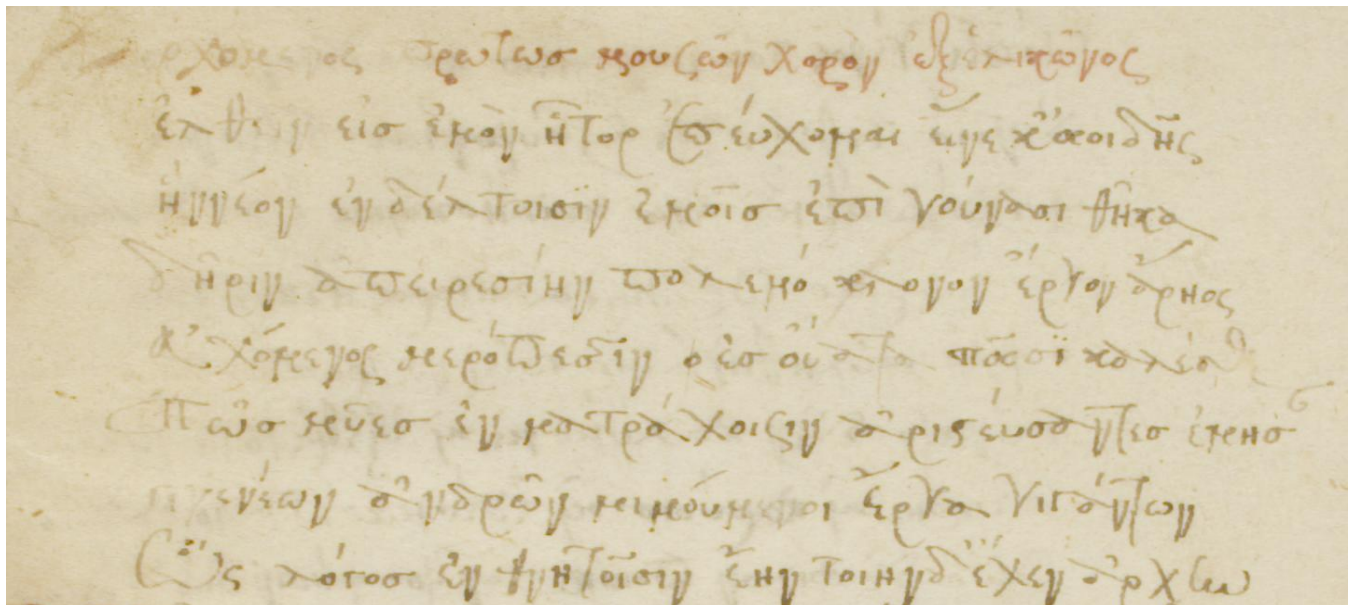 ἀρχόμενος πρῶτως μουζῶν χορὸν ἐξ ἑλικῶνος
ἐλθεῖν εἰς ἐμὸν ἦτορ ἐπεύχομαι εἵνεκ' ἀοιδῆς
ἣν νέον ἐν δέλτοισιν ἐμοῖς ἐπὶ γούνασι θῆκα
δῆριν ἀπειρεσίην πολεμόκλονον ἔργον ἄρηος
εὐχόμενος μερόπεσσιν ἐς οὔατα πᾶσι βαλέσθαι
Πῶς μῦες ἐν βατράχοιζιν ἀριστεύσαντες ἔβησ
γηγενέων ἀνδρῶν μιμούμενοι ἔργα γιγάντων
Ὡς λόγος ἐν θνητοῖσιν ἔην τοίην δ' ἔχεν ἀρχήν